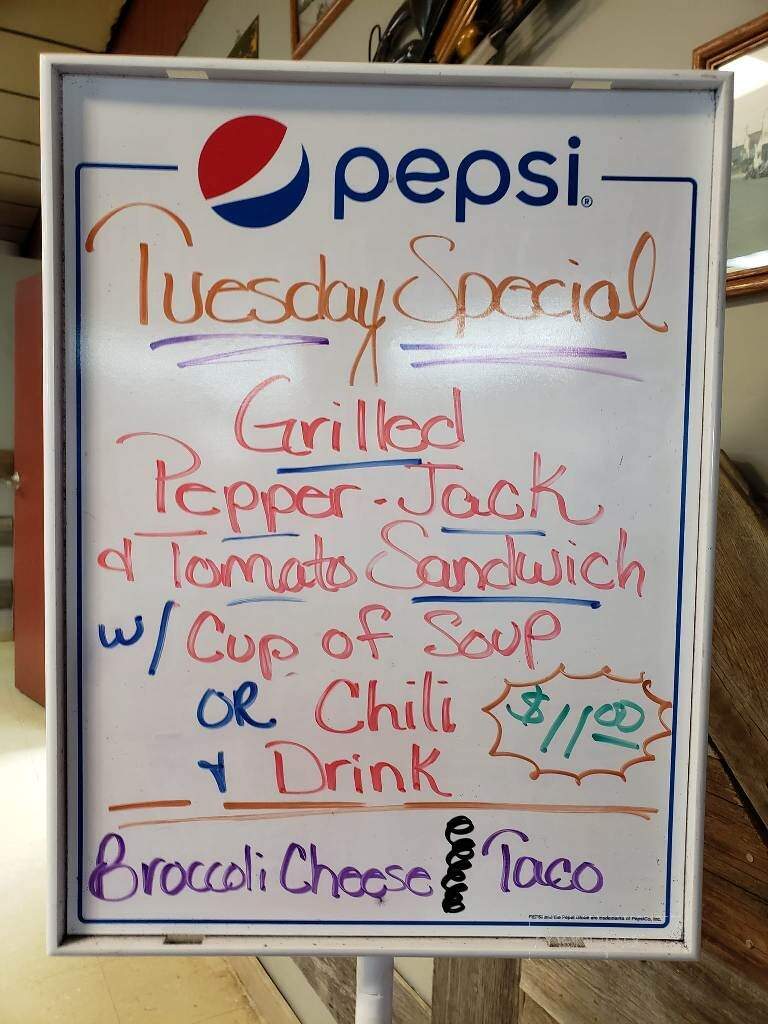 pepsi®
Tuesday Special
Grilled
Pepper-Jack
& Tomato Sandwich
w/ Cup of Soup
OR Chili
& Drink
$11.00
Broccoli Cheese Taco
PEPSI and the Pepsi Globe are trademarks of PepsiCo, Inc.